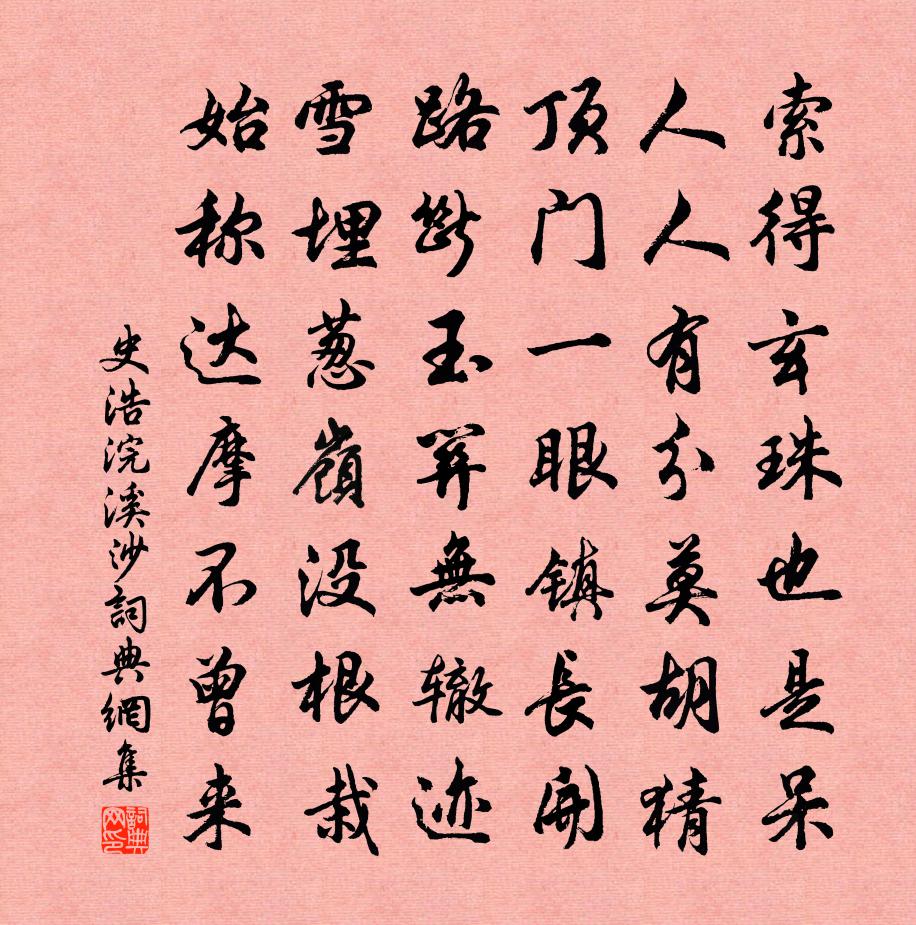 索得玄珠也是呆
人人有分莫胡猜
顶门一眼镇长開
路断玉关無辙迹
雪埋葱嶺没根栽
始称达摩不曾来
史浩浣溪沙詞典網集
詞典网印